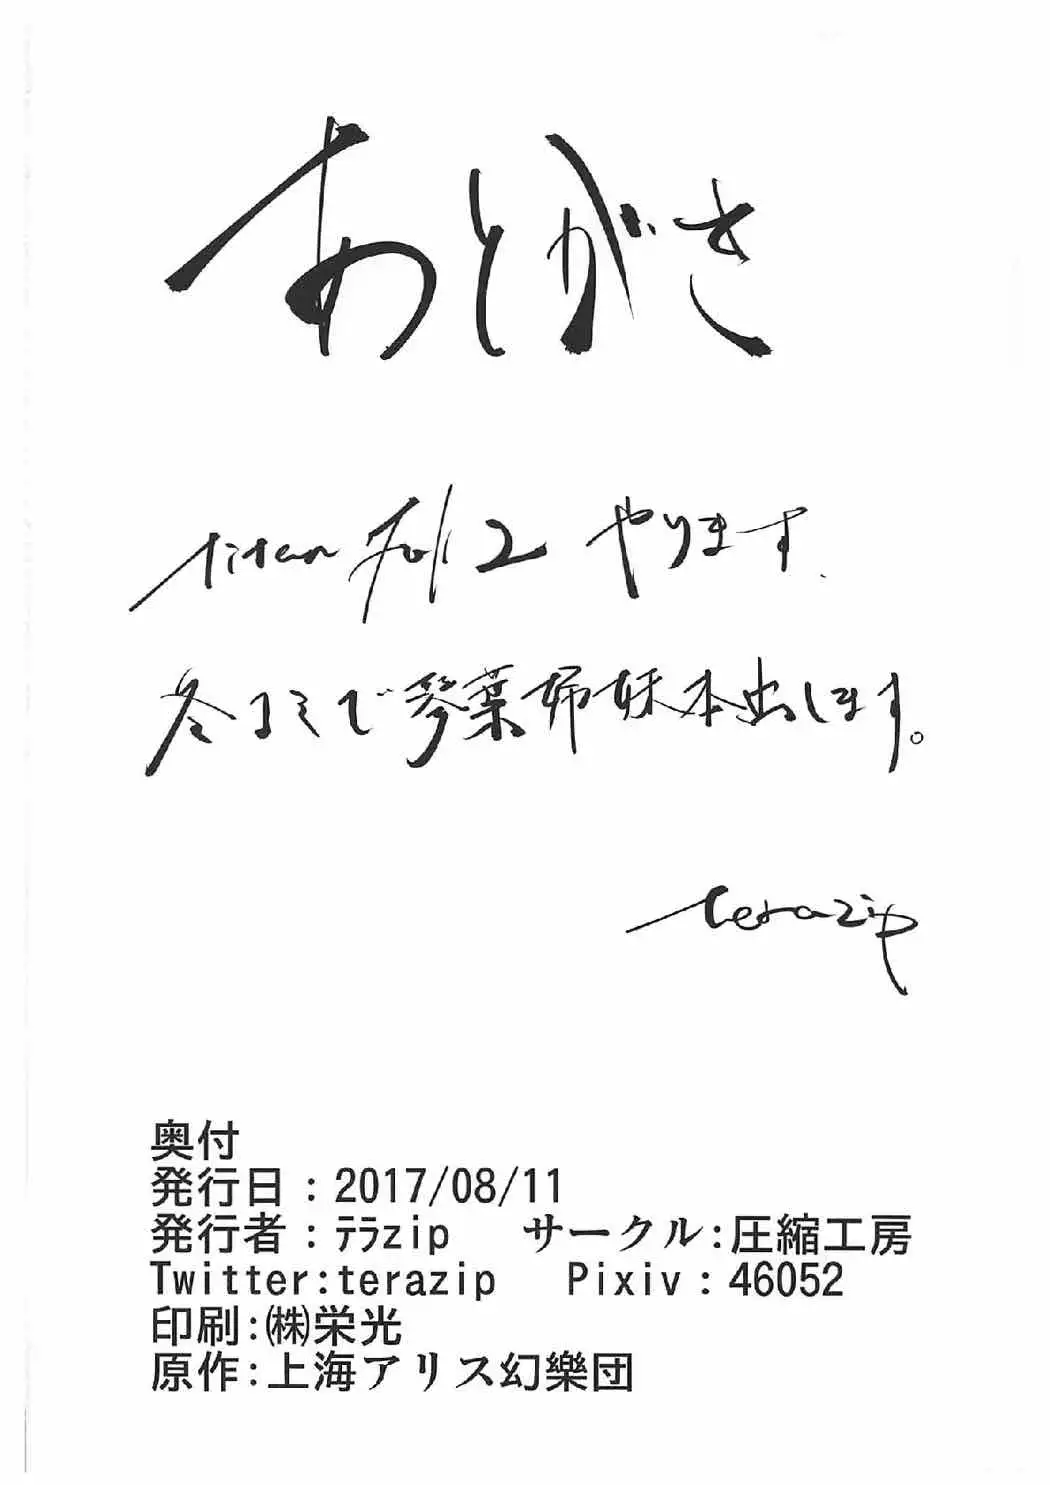 あとがき
titan fol 2 やります.
冬コミで琴葉姉妹本出します。
terazip
奥付
発行日：2017/08/11
発行者：ﾃﾗzip サークル：圧縮工房
Twitter:terazip Pixiv：46052
印刷：㈱栄光
原作：上海アリス幻樂団